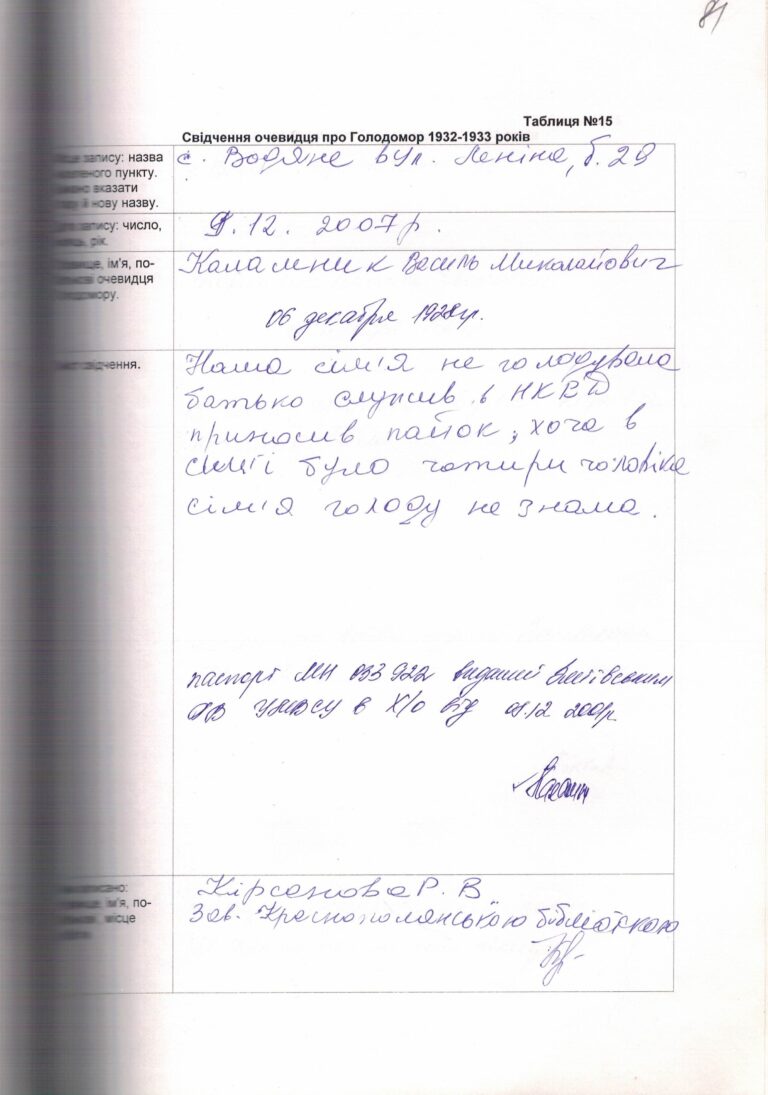 81
Таблиця №15
Свідчення очевидця про Голодомор 1932-1933 років
запису: назва
населеного пункту.
вказати
й нову назву.
с. Водяне вул. Леніна, б. 29
запису: число,
рік.
12. 2007 р.
ім'я, по-
очевидця
Голодомору.
Каламник Василь Миколайович
06 декабря 1928 г.
свідчення.
Наша сім'я не голодувала
батько служив в НКВД
приносив пайок, хоча в
сім'ї було чотири чоловіка
сім'я голоду не знала.
паспорт МН 093922 виданий Зміївським
РВ УМВСУ в Х/о від 2001р.
ім'я, по-
місце
Кірсанова Р. В
Зав. Краснополянською бібліотекою